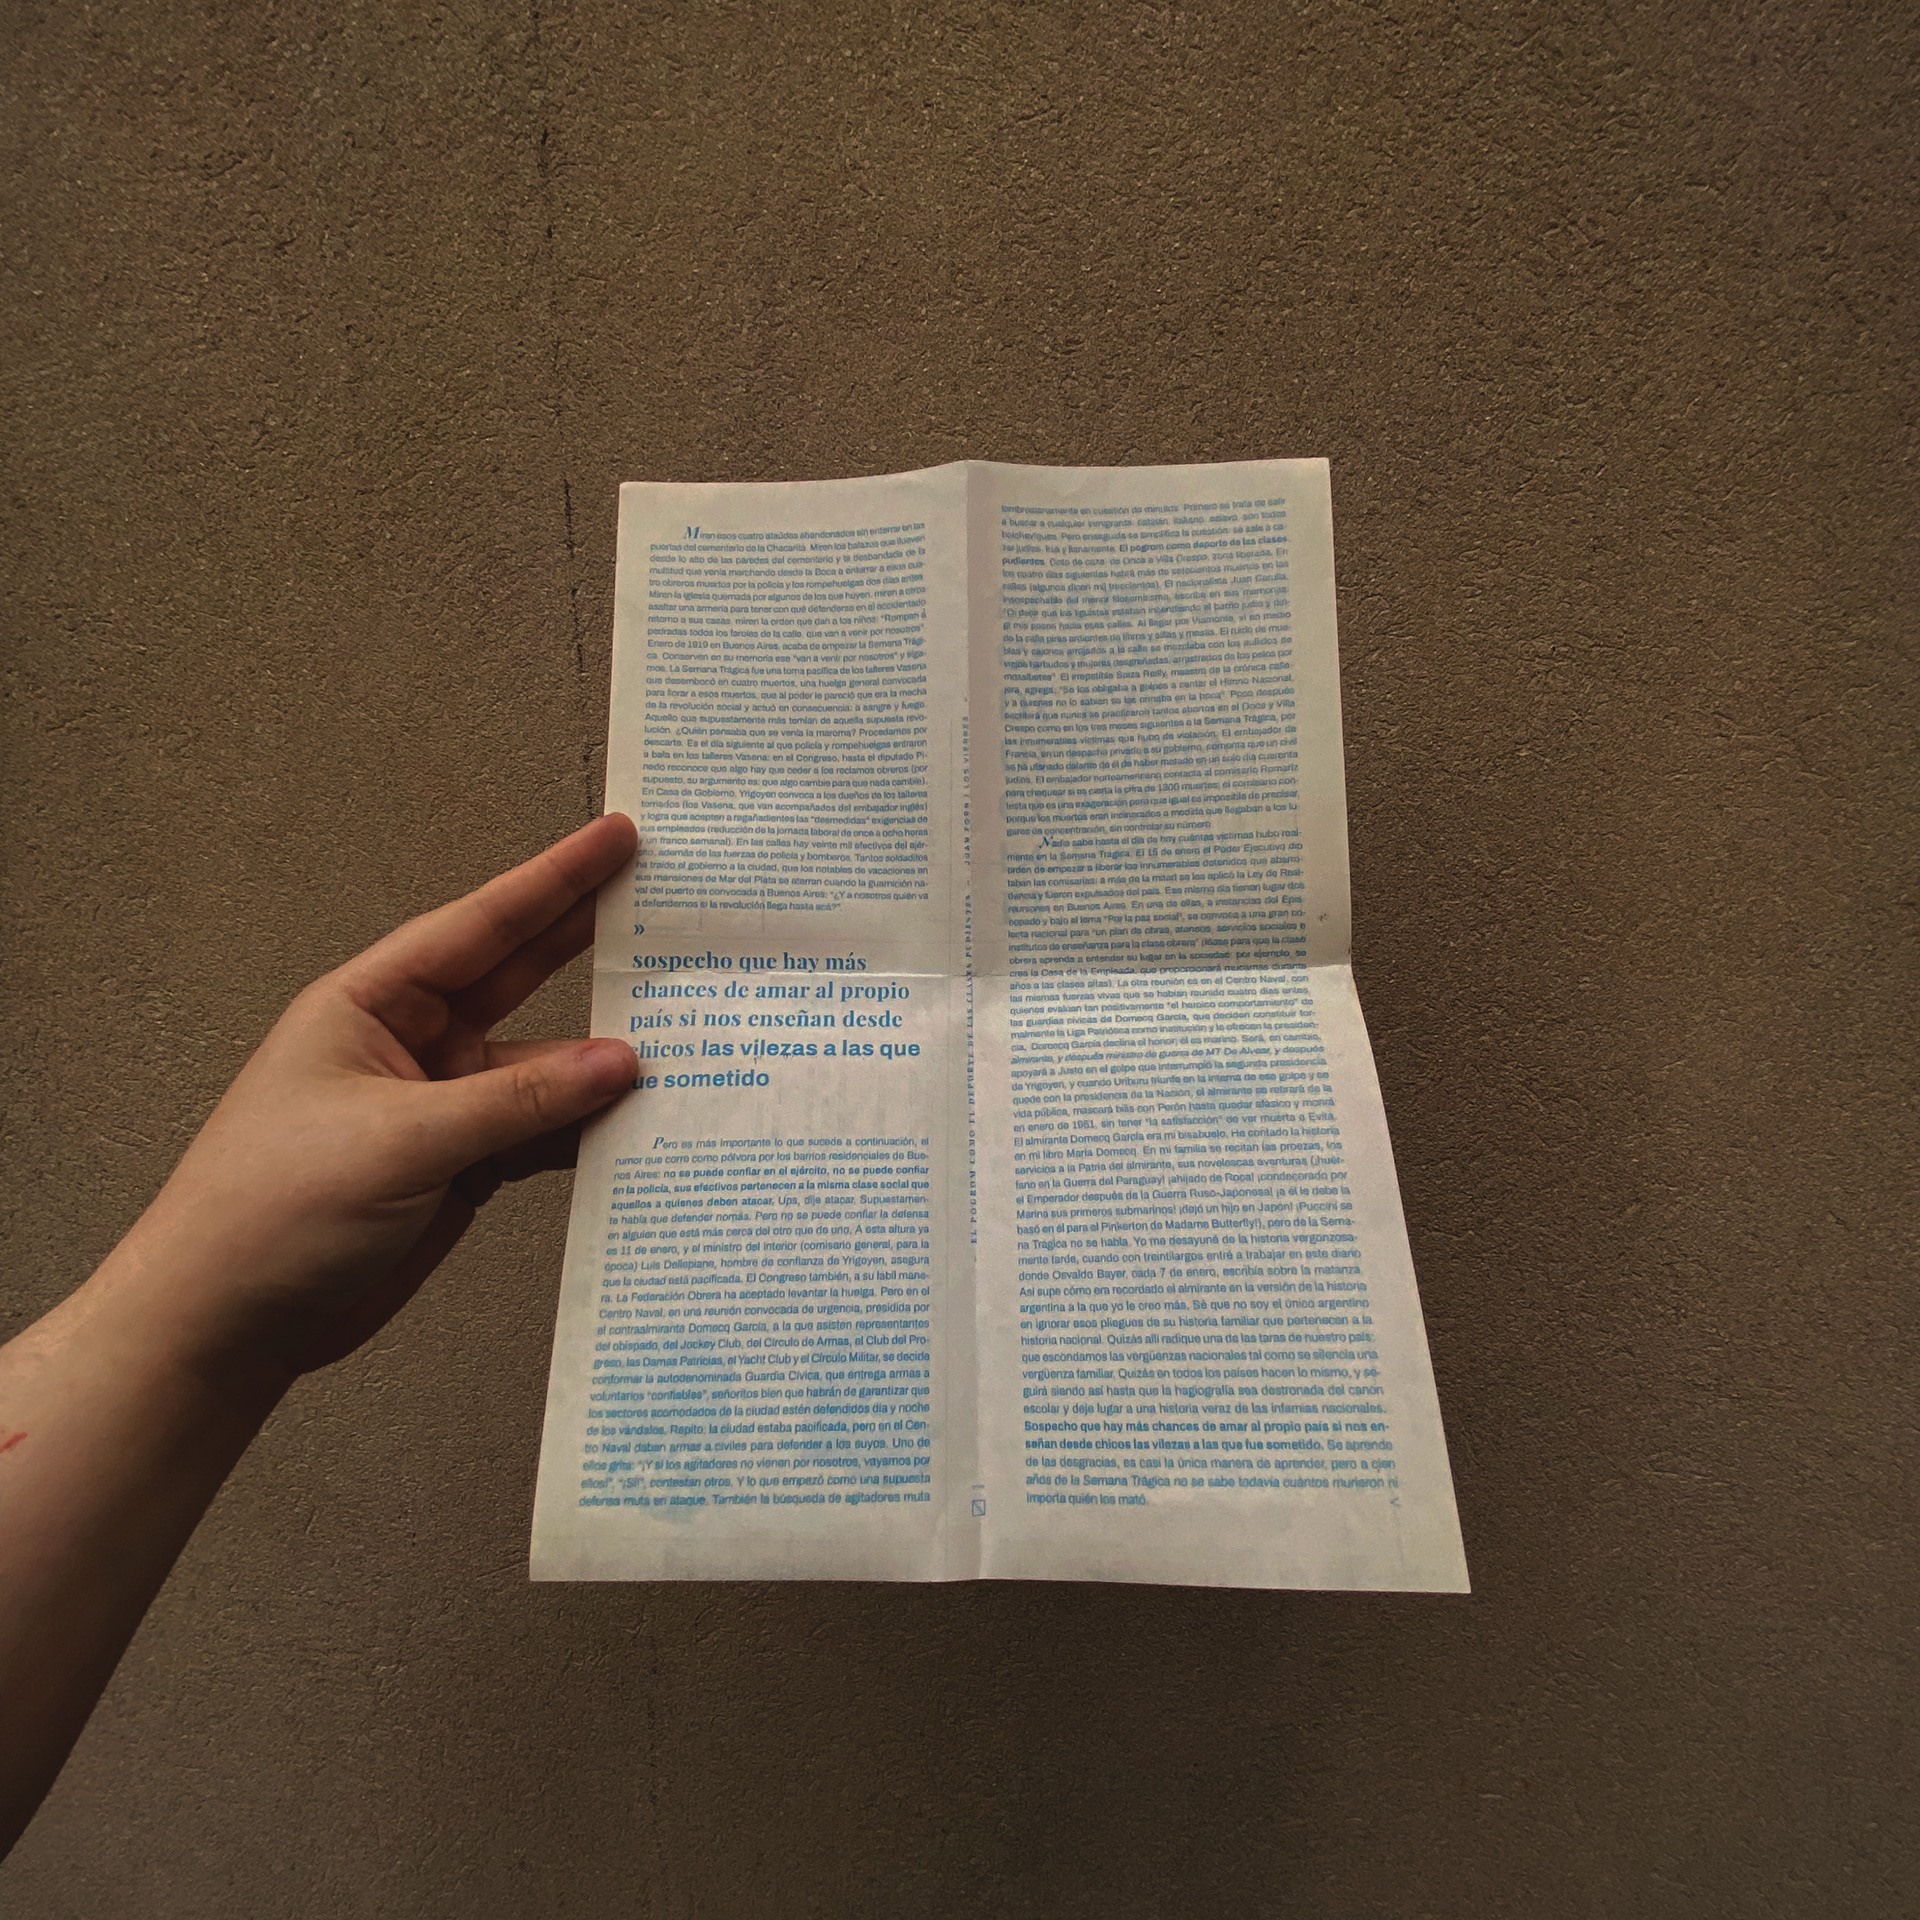 Miren esos cuatro ataúdes abandonados sin enterrar en las
puertas del cementerio de la Chacarita. Miren los balazos que llueven
desde lo alto de las paredes del cementerio y la desbandada de la
multitud que venía marchando desde la Boca a enterrar a esos cua-
tro obreros muertos por la policía y los rompehuelgas dos días antes.
Miren la iglesia quemada por algunos de los que huyen, miren a otros
asaltar una armería para tener con qué defenderse en el accidentado
retorno a sus casas, miren la orden que dan a los niños: "Rompan a
pedradas todos los faroles de la calle, que van a venir por nosotros".
Enero de 1919 en Buenos Aires, acaba de empezar la Semana Trági-
ca. Conserven en su memoria ese "van a venir por nosotros" y siga-
mos. La Semana Trágica fue una toma pacífica de los talleres Vasena
que desembocó en cuatro muertos, una huelga general convocada
para llorar a esos muertos, que al poder le pareció que era la mecha
de la revolución social y actuó en consecuencia: a sangre y fuego.
Aquello que supuestamente más temían de aquella supuesta revo-
lución. ¿Quién pensaba que se venía la maroma? Procedamos por
descarte. Es el día siguiente al que policía y rompehuelgas entraron
a bala en los talleres Vasena: en el Congreso, hasta el diputado Pi-
nedo reconoce que algo hay que ceder a los reclamos obreros (por
supuesto, su argumento es: que algo cambie para que nada cambie).
En Casa de Gobierno, Yrigoyen convoca a los dueños de los talleres
tomados (los Vasena, que van acompañados del embajador inglés)
y logra que acepten a regañadientes las "desmedidas" exigencias de
sus empleados (reducción de la jornada laboral de once a ocho horas
y un franco semanal). En las calles hay veinte mil efectivos del ejér-
cito, además de las fuerzas de policía y bomberos. Tantos soldaditos
ha traído el gobierno a la ciudad, que los notables de vacaciones en
sus mansiones de Mar del Plata se aterran cuando la guarnición na-
val del puerto es convocada a Buenos Aires: "¿Y a nosotros quién va
a defendernos si la revolución llega hasta acá?".
»
sospecho que hay más
chances de amar al propio
país si nos enseñan desde
chicos las vilezas a las que
ue sometido
Pero es más importante lo que sucede a continuación, el
rumor que corre como pólvora por los barrios residenciales de Bue-
nos Aires: no se puede confiar en el ejército, no se puede confiar
en la policía, sus efectivos pertenecen a la misma clase social que
aquellos a quienes deben atacar. Ups, dije atacar. Supuestamen-
te había que defender nomás. Pero no se puede confiar la defensa
en alguien que está más cerca del otro que de uno. A esta altura ya
es 11 de enero, y el ministro del interior (comisario general, para la
época) Luis Dellepiane, hombre de confianza de Yrigoyen, asegura
que la ciudad está pacificada. El Congreso también, a su lábil mane-
ra. La Federación Obrera ha aceptado levantar la huelga. Pero en el
Centro Naval, en una reunión convocada de urgencia, presidida por
el contraalmirante Domecq García, a la que asisten representantes
del obispado, del Jockey Club, del Círculo de Armas, el Club del Pro-
greso, las Damas Patricias, el Yacht Club y el Círculo Militar, se decide
conformar la autodenominada Guardia Cívica, que entrega armas a
voluntarios "confiables", señoritos bien que habrán de garantizar que
los sectores acomodados de la ciudad estén defendidos día y noche
de los vándalos. Repito: la ciudad estaba pacificada, pero en el Cen-
tro Naval daban armas a civiles para defender a los suyos. Uno de
ellos grita: "¡Y si los agitadores no vienen por nosotros, vayamos por
ellos!". "¡Sí!", contestan otros. Y lo que empezó como una supuesta
defensa muta en ataque. También la búsqueda de agitadores muta
EL POGROM COMO EL DEPORTE DE LAS CLASES PUDIENTES – JUAN FORN | LOS VIERNES
lombrosianamente en cuestión de minutos. Primero se trata de salir
a buscar a cualquier inmigrante: catalán, italiano, eslavo, son todos
bolcheviques. Pero enseguida se simplifica la cuestión: se sale a ca-
zar judíos, lisa y llanamente. El pogrom como deporte de las clases
pudientes. Coto de caza: de Once a Villa Crespo, zona liberada. En
los cuatro días siguientes habrá más de setecientos muertos en las
calles (algunos dicen mil trescientos). El nacionalista Juan Carulla,
insospechable del menor filosemitismo, escribe en sus memorias:
"Oí decir que los liguistas estaban incendiando el barrio judío y diri-
gí mis pasos hacia esas calles. Al llegar por Viamonte, vi en medio
de la calle piras ardientes de libros y sillas y mesas. El ruido de mue-
bles y cajones arrojados a la calle se mezclaba con los aullidos de
viejos barbudos y mujeres desgreñadas, arrastrados de los pelos por
mozalbetes". El irrepetible Soiza Reilly, maestro de la crónica calle-
jera, agrega: "Se los obligaba a golpes a cantar el Himno Nacional,
y a quienes no lo sabían se los orinaba en la boca". Poco después
escribirá que nunca se practicaron tantos abortos en el Once y Villa
Crespo como en los tres meses siguientes a la Semana Trágica, por
las innumerables víctimas que hubo de violación. El embajador de
Francia, en un despacho privado a su gobierno, comenta que un civil
se ha ufanado delante de él de haber matado en un solo día cuarenta
judíos. El embajador norteamericano contacta al comisario Romariz
para chequear si es cierta la cifra de 1300 muertes; el comisario con-
testa que es una exageración pero que igual es imposible de precisar,
porque los muertos eran incinerados a medida que llegaban a los lu-
gares de concentración, sin controlar su número.
Nadie sabe hasta el día de hoy cuántas víctimas hubo real-
mente en la Semana Trágica. El 15 de enero el Poder Ejecutivo dio
orden de empezar a liberar los innumerables detenidos que abarro-
taban las comisarías: a más de la mitad se les aplicó la Ley de Resi-
dencia y fueron expulsados del país. Ese mismo día tienen lugar dos
reuniones en Buenos Aires. En una de ellas, a instancias del Epis-
copado y bajo el lema "Por la paz social", se convoca a una gran co-
lecta nacional para "un plan de obras, ateneos, servicios sociales e
institutos de enseñanza para la clase obrera" (léase para que la clase
obrera aprenda a entender su lugar en la sociedad: por ejemplo, se
crea la Casa de la Empleada, que proporcionará mucamas durante
años a las clases altas). La otra reunión es en el Centro Naval, con
las mismas fuerzas vivas que se habían reunido cuatro días antes,
quienes evalúan tan positivamente "el heroico comportamiento" de
las guardias cívicas de Domecq García, que deciden constituir for-
malmente la Liga Patriótica como institución y le ofrecen la presiden-
cia. Domecq García declina el honor; él es marino. Será, en cambio,
almirante, y después ministro de guerra de MT De Alvear, y después
apoyará a Justo en el golpe que interrumpió la segunda presidencia
de Yrigoyen, y cuando Uriburu triunfe en la interna de ese golpe y se
quede con la presidencia de la Nación, el almirante se retirará de la
vida pública, mascará bilis con Perón hasta quedar afásico y morirá
en enero de 1951, sin tener "la satisfacción" de ver muerta a Evita.
El almirante Domecq García era mi bisabuelo. He contado la historia
en mi libro María Domecq. En mi familia se recitan las proezas, los
servicios a la Patria del almirante, sus novelescas aventuras (¡huér-
fano en la Guerra del Paraguay! ¡ahijado de Roca! ¡condecorado por
el Emperador después de la Guerra Ruso-Japonesa! ¡a él le debe la
Marina sus primeros submarinos! ¡dejó un hijo en Japón! ¡Puccini se
basó en él para el Pinkerton de Madame Butterfly!), pero de la Sema-
na Trágica no se habla. Yo me desayuné de la historia vergonzosa-
mente tarde, cuando con treintilargos entré a trabajar en este diario
donde Osvaldo Bayer, cada 7 de enero, escribía sobre la matanza.
Así supe cómo era recordado el almirante en la versión de la historia
argentina a la que yo le creo más. Sé que no soy el único argentino
en ignorar esos pliegues de su historia familiar que pertenecen a la
historia nacional. Quizás allí radique una de las taras de nuestro país:
que escondamos las vergüenzas nacionales tal como se silencia una
vergüenza familiar. Quizás en todos los países hacen lo mismo, y se-
guirá siendo así hasta que la hagiografía sea destronada del canon
escolar y deje lugar a una historia veraz de las infamias nacionales.
Sospecho que hay más chances de amar al propio país si nos en-
señan desde chicos las vilezas a las que fue sometido. Se aprende
de las desgracias, es casi la única manera de aprender, pero a cien
años de la Semana Trágica no se sabe todavía cuántos murieron ni
importa quién los mató.